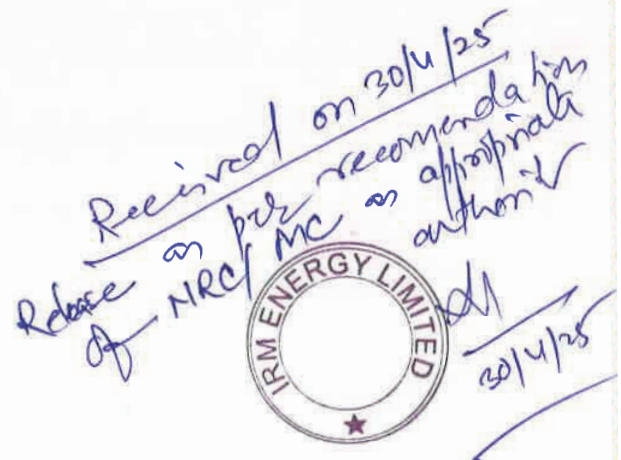 Received on 30/4/25
Release as per recommendation
of NRC/MC or appropriate
authority
IRM ENERGY LIMITED
30/4/25